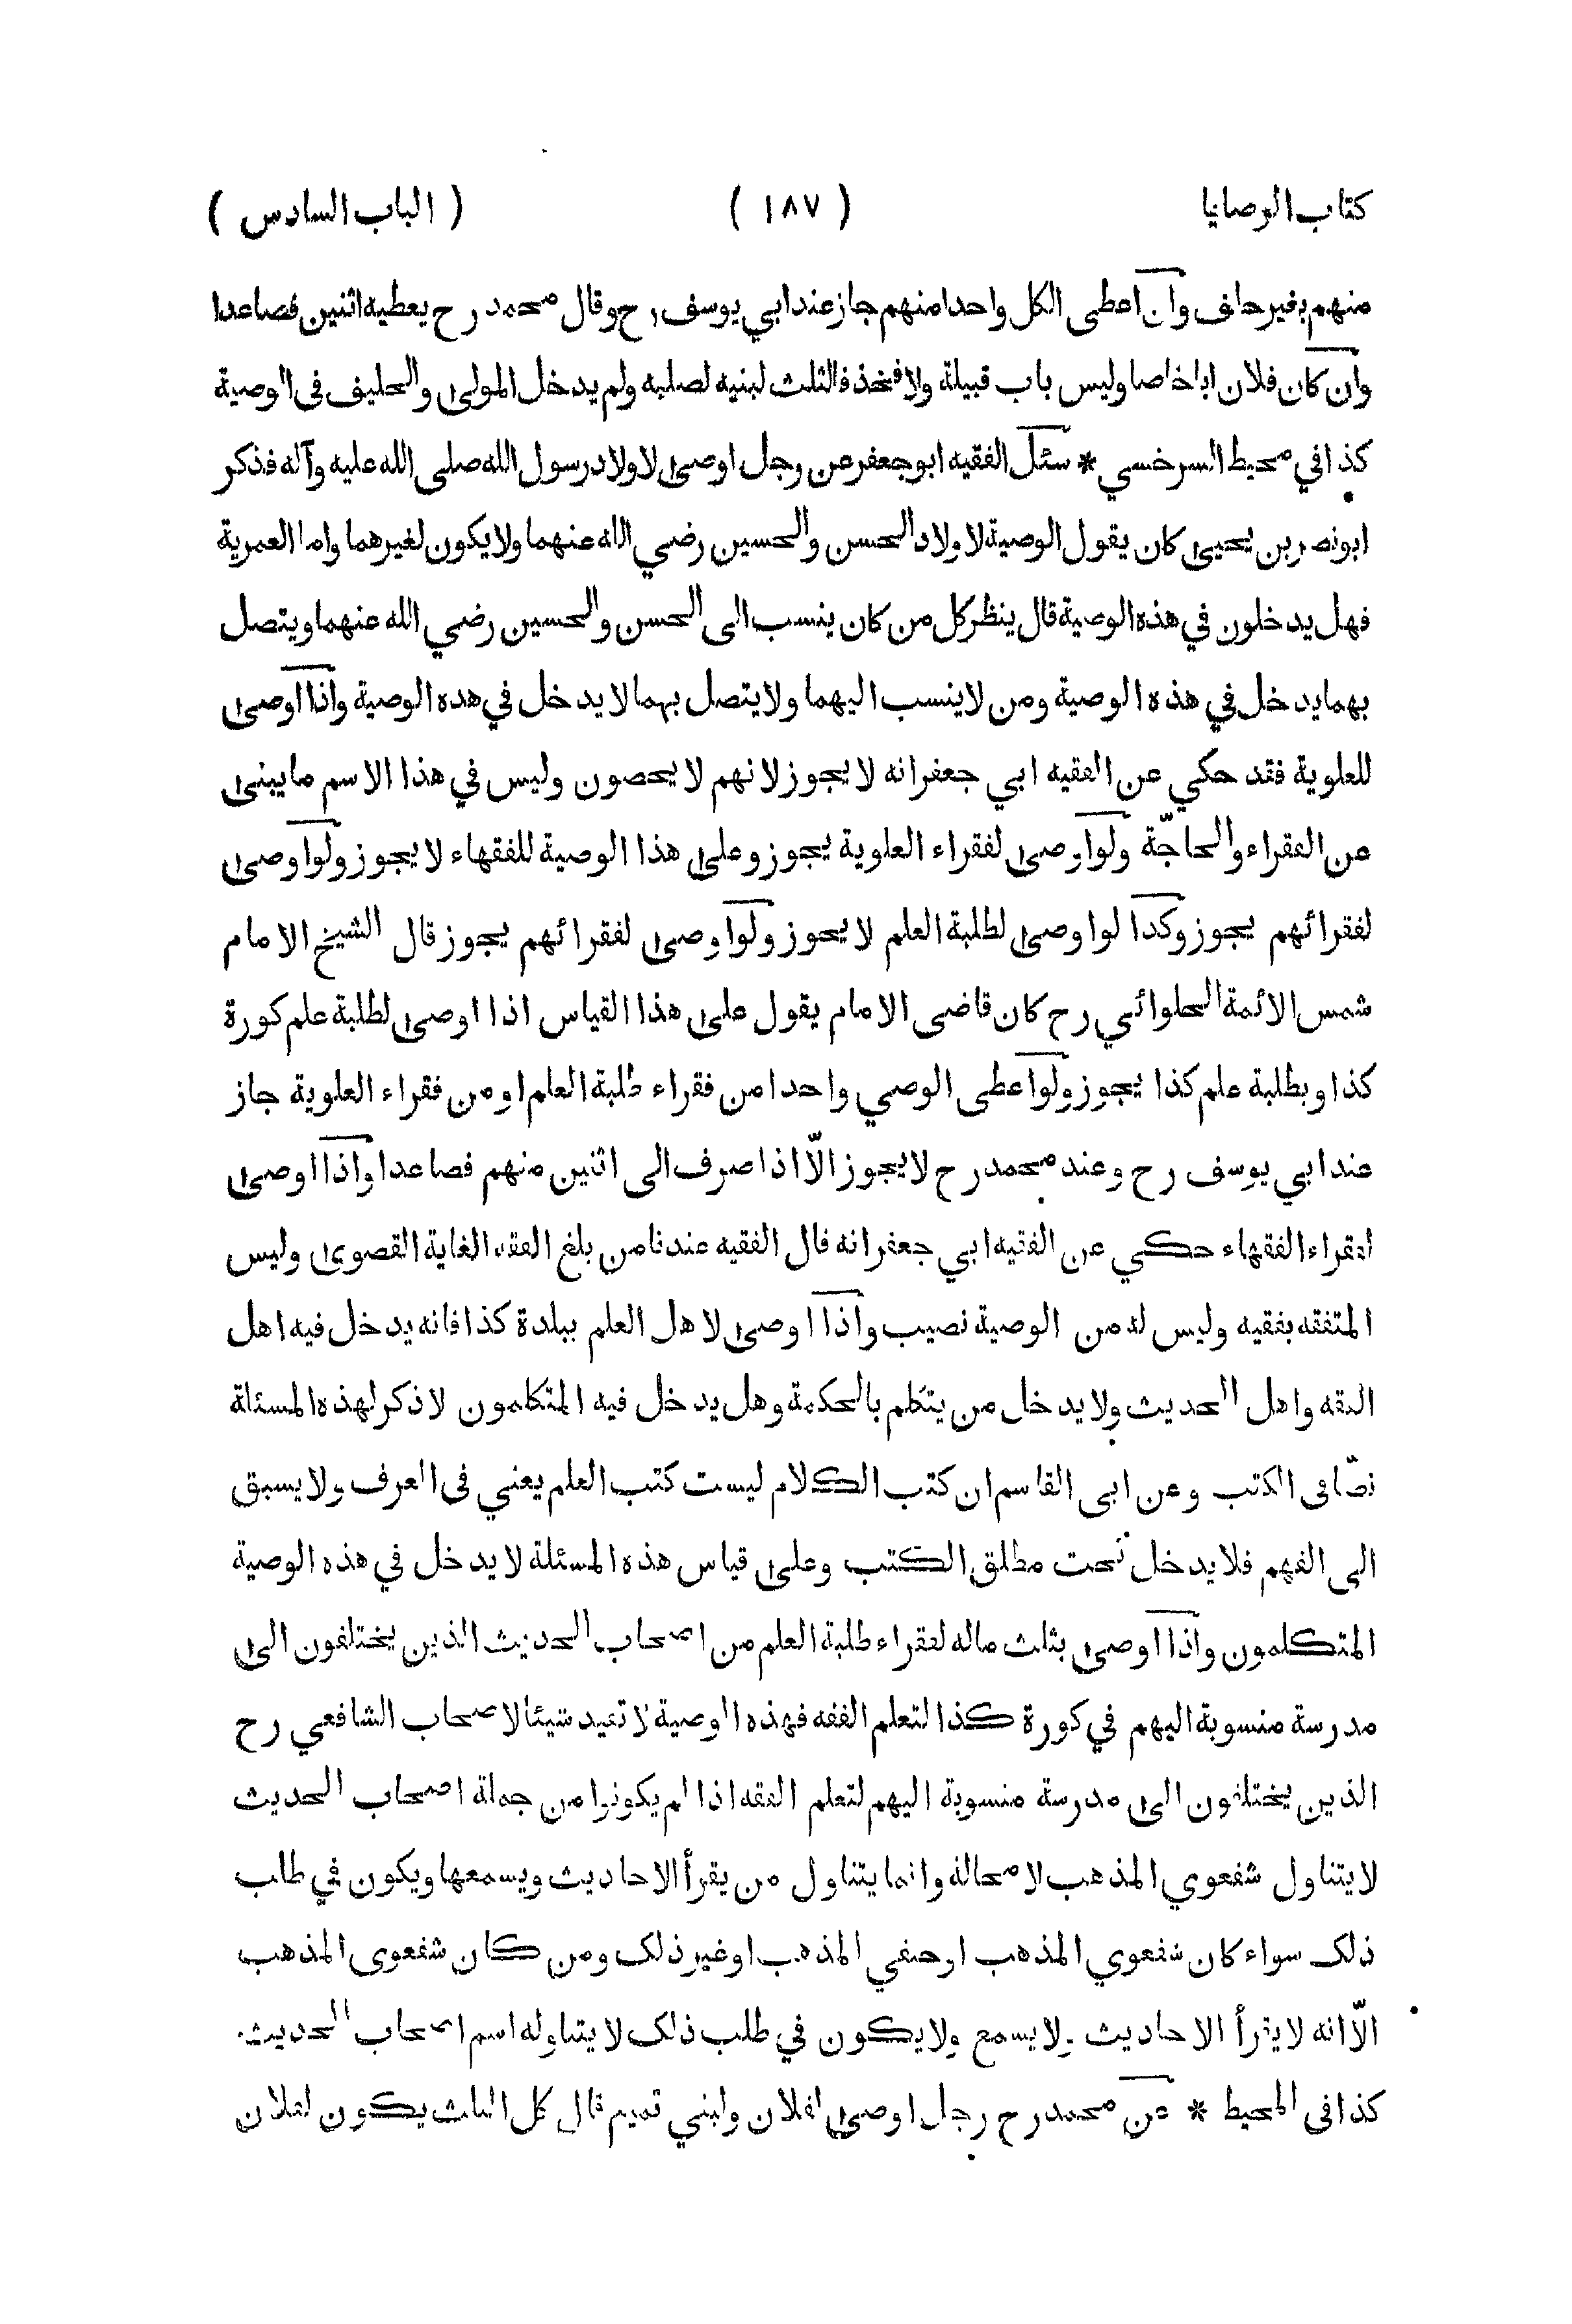 كتاب الوصايا ( ١٨٧ ) ( الباب السادس )
منهم بغير حلف وان اعطى الكل واحدا منهم جاز عند ابي يوسف رح وقال محمد رح يعطيه اثنين فصاعدا
وان كان فلان ابا خاصا وليس باب قبيلة ولا فخذ فالثلث لبنيه لصلبه ولم يدخل المولى والحليف فى الوصية
كذا في محيط السرخسي * سئل الفقيه ابو جعفر عن رجل اوصى لاولاد رسول الله صلى الله عليه وآله فذكر
ابو نصر بن يحيى كان يقول الوصية لاولاد الحسن والحسين رضي الله عنهما ولا يكون لغيرهما واما العمرية
فهل يدخلون في هذه الوصية قال ينظر كل من كان ينسب الى الحسن والحسين رضي الله عنهما ويتصل
بهما يدخل في هذه الوصية ومن لا ينسب اليهما ولا يتصل بهما لا يدخل في هذه الوصية واذا اوصى
للعلوية فقد حكي عن الفقيه ابي جعفر انه لا يجوز لانهم لا يحصون وليس في هذا الاسم ما يبنى
عن الفقراء والحاجّة ولو اوصى لفقراء العلوية يجوز وعلى هذا الوصية للفقهاء لا يجوز ولو اوصى
لفقرائهم يجوز وكذا لو اوصى لطلبة العلم لا يجوز ولو اوصى لفقرائهم يجوز قال الشيخ الامام
شمس الائمة الحلوائي رح كان قاضى الامام يقول على هذا القياس اذا اوصى لطلبة علم كورة
كذا وبطلبة علم كذا يجوز ولو اعطى الوصي واحدا من فقراء طلبة العلم او من فقراء العلوية جاز
عند ابي يوسف رح وعند محمد رح لا يجوز الّا اذا صرف الى اثنين منهم فصاعدا واذا اوصى
لفقراء الفقهاء حكي عن الفقيه ابي جعفر انه قال الفقيه عندنا من بلغ الفقه الغاية القصوى وليس
المتفقه بفقيه وليس له من الوصية نصيب واذا اوصى لاهل العلم ببلدة كذا فانه يدخل فيه اهل
الفقه واهل الحديث ولا يدخل من يتكلم بالحكمة وهل يدخل فيه المتكلمون لا ذكر لهذه المسئلة
نصّا فى الكتب وعن ابى القاسم ان كتب الكلام ليست كتب العلم يعني فى العرف ولا يسبق
الى الفهم فلا يدخل تحت مطلق الكتب وعلى قياس هذه المسئلة لا يدخل في هذه الوصية
المتكلمون واذا اوصى بثلث ماله لفقراء طلبة العلم من اصحاب الحديث الذين يختلفون الى
مدرسة منسوبة اليهم في كورة كذا لتعلم الفقه فهذه الوصية لا تفيد شيئا لاصحاب الشافعي رح
الذين يختلفون الى مدرسة منسوبة اليهم لتعلم الفقه اذا لم يكونوا من جملة اصحاب الحديث
لا يتناول شفعوي المذهب لا محالة وانما يتناول من يقرأ الاحاديث ويسمعها ويكون في طلب
ذلك سواء كان شفعوي المذهب او حنفي المذهب او غير ذلك ومن كان شفعوى المذهب
الّا انه لا يقرأ الاحاديث ولا يسمع ولا يكون في طلب ذلك لا يتناوله اسم اصحاب الحديث
كذا فى المحيط * عن محمد رح رجل اوصى لفلان ولبني تميم قال كل الثلث يكون لفلان